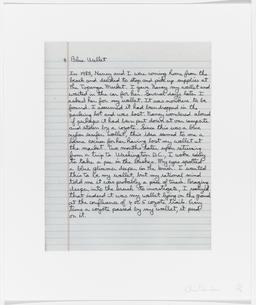 Blue Wallet
In 1983, Nancy and I were coming home from the
beach and decided to stop and pick up supplies at
the Topanga Market. I gave Nancy my wallet and
waited in the car for her. Several days later I
asked her for my wallet. It was nowhere to be
found. I assumed it had been dropped in the
parking lot and was lost. Nancy wondered aloud
if perhaps it had been put down at our campsite
and stolen by a coyote. Since this was a blue
nylon surfer wallet this idea seemed to me a
lame excuse for her having lost my wallet at
the market. Two months later after returning
from a trip to Washington D.C., I woke early
to take a pee in the bushes. My eyes spotted
a blue glimmer deeper in the brush. I wanted
this to be my wallet, but my rational mind
told me it was probably a piece of trash. Foraging
deeper into the brush to investigate, I realized
that indeed it was my wallet lying on the ground
at the confluence of 4 or 5 coyote trails. Every
time a coyote passed by my wallet, it peed
on it.